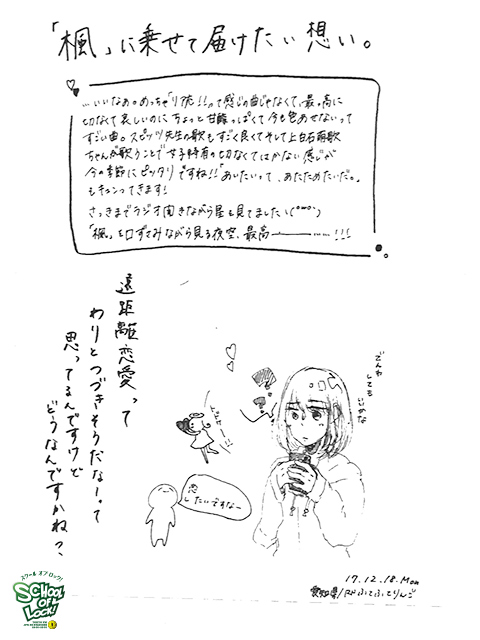 「楓」に乗せて届けたい想い。
…いいなぁ。めっちゃ「リア充!!」って感じの曲じゃなくて、最っ高に
切なくて哀しいのに ちょっと甘酸っぱくて今も色あせないって
すごい曲。スピッツ先生の歌もすごく良くてそして上白石萌歌
ちゃんが歌うことで女子特有の切なくてはかない感じが
今の季節にピッタリですね!!「あいたいって、あたためたいだ。」
もキュンってきます!
さっきまでラジオ聞きながら星を見てました
「楓」を口ずさみながら見る夜空、最高――!!!
遠距離恋愛って
わりとつづきそうだなーって
思ってるんですけど
どうなんですかね?
でんわ
しても
いいかな
恋
したいですなー
17.12.18.Mon
愛知県/RNふてふてりんご
スクール オブ ロック!
SCHOOL OF LOCK!